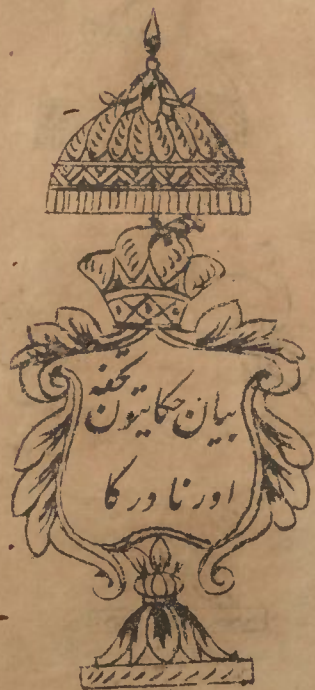 بیان حکایتوں تحفہ
اور نادر کا